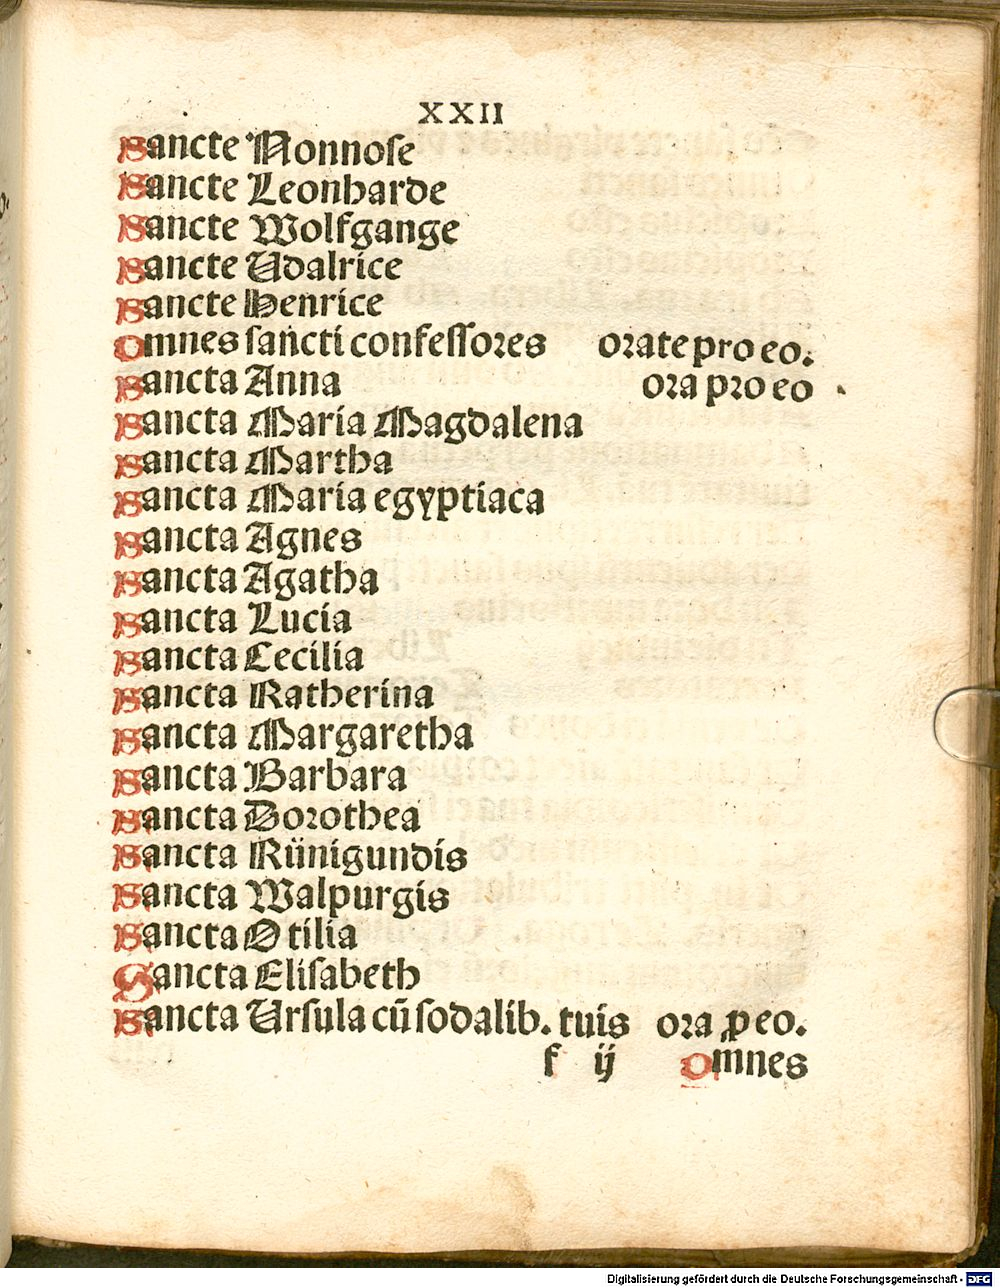 XXII
Sancte Nonnose
Sancte Leonharde
Sancte Wolfgange
Sancte Udalrice
Sancte Henrice
Omnes sancti confessores orate pro eo.
Sancta Anna ora pro eo .
Sancta Maria Magdalena
Sancta Martha
Sancta Maria egyptiaca
Sancta Agnes
Sancta Agatha
Sancta Lucia
Sancta Cecilia
Sancta Katherina
Sancta Margaretha
Sancta Barbara
Sancta Dorothea
Sancta Künigundis
Sancta Walpurgis
Sancta Otilia
Sancta Elisabeth
Sancta Ursula cū sodalib. tuis ora ꝓ eo.
f ij Omnes
Digitalisierung gefördert durch die Deutsche Forschungsgemeinschaft - DFG